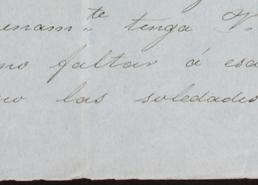 unam.te tenga V.
no faltar á esa
no las soledades